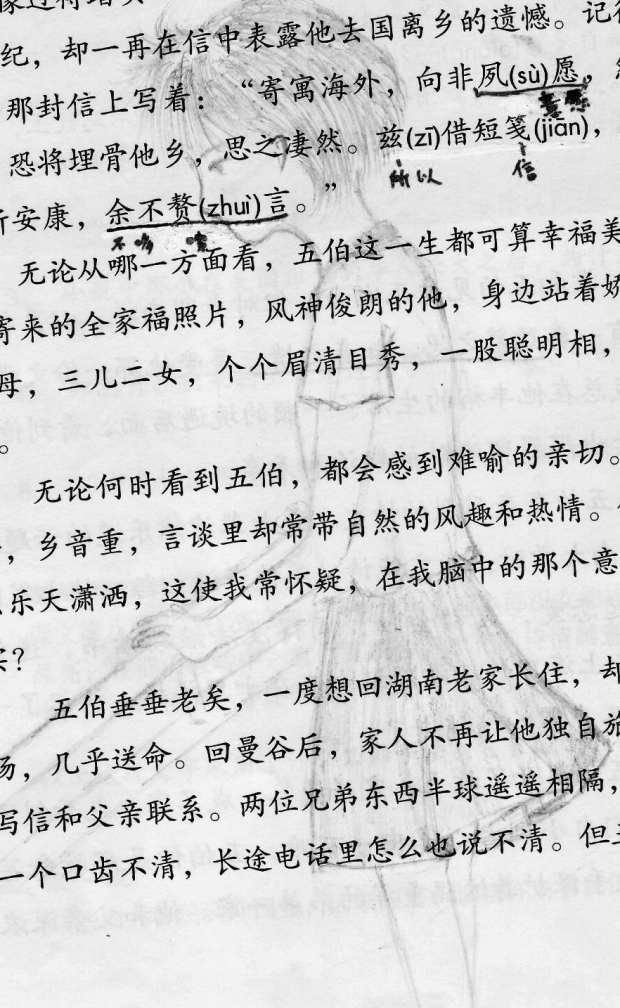 纪，却一再在信中表露他去国离乡的遗憾。记
那封信上写着：“寄寓海外，向非夙(sù)愿，
意愿
恐将埋骨他乡，思之凄然。兹(zī)借短笺(jiān)，
所以 信
安康，余不赘(zhuì)言。”
不多
无论从哪一方面看，五伯这一生都可算幸福美
寄来的全家福照片，风神俊朗的他，身边站着娇
母，三儿二女，个个眉清目秀，一股聪明相，
。
无论何时看到五伯，都会感到难喻的亲切。
，乡音重，言谈里却常带自然的风趣和热情。
乐天潇洒，这使我常怀疑，在我脑中的那个意
？
五伯垂垂老矣，一度想回湖南老家长住，却
场，几乎送命。回曼谷后，家人不再让他独自旅
写信和父亲联系。两位兄弟东西半球遥遥相隔，
一个口齿不清，长途电话里怎么也说不清。但